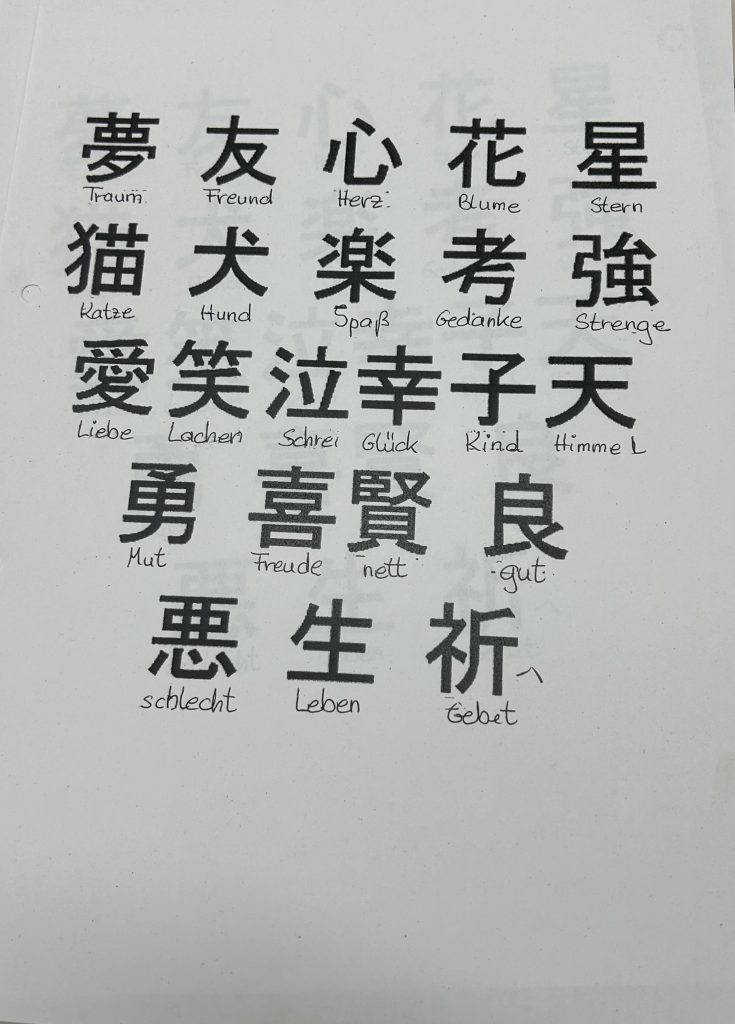 夢 友 心 花 星
Traum Freund Herz Blume Stern
猫 犬 楽 考 強
Katze Hund Spaß Gedanke Strenge
愛 笑 泣 幸 子 天
Liebe Lachen Schrei Glück Kind Himmel
勇 喜 賢 良
Mut Freude nett gut
悪 生 祈
schlecht Leben Gebet